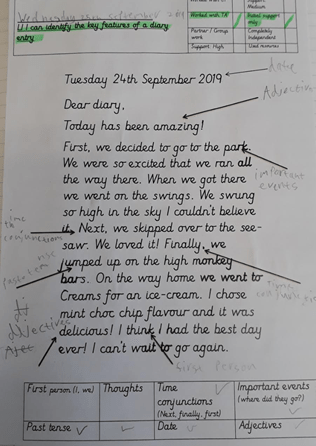 LI I can identify the key features of a diary
entry
Worked with TA
Partner / Group
work
Support High
Support
Medium
Completely
Independent
Tuesday 24th September 2019
date
Dear diary,
Adjective
Today has been amazing!
First, we decided to go to the park.
We were so excited that we ran all
the way there. When we got there
important
events
we went on the swings. We swung
so high in the sky I couldn't believe
time
it. Next, we skipped over to the see-
saw. We loved it! Finally, we
jumped up on the high monkey
bars. On the way home we went to
Creams for an ice-cream. I chose
mint choc chip flavour and it was
adjectives
delicious! I think I had the best day
ever! I can't wait to go again.
first person
First person (I, we)
Thoughts
Time
conjunctions
(Next, finally, first)
Important events
(where did they go?)
Past tense
Date
Adjectives